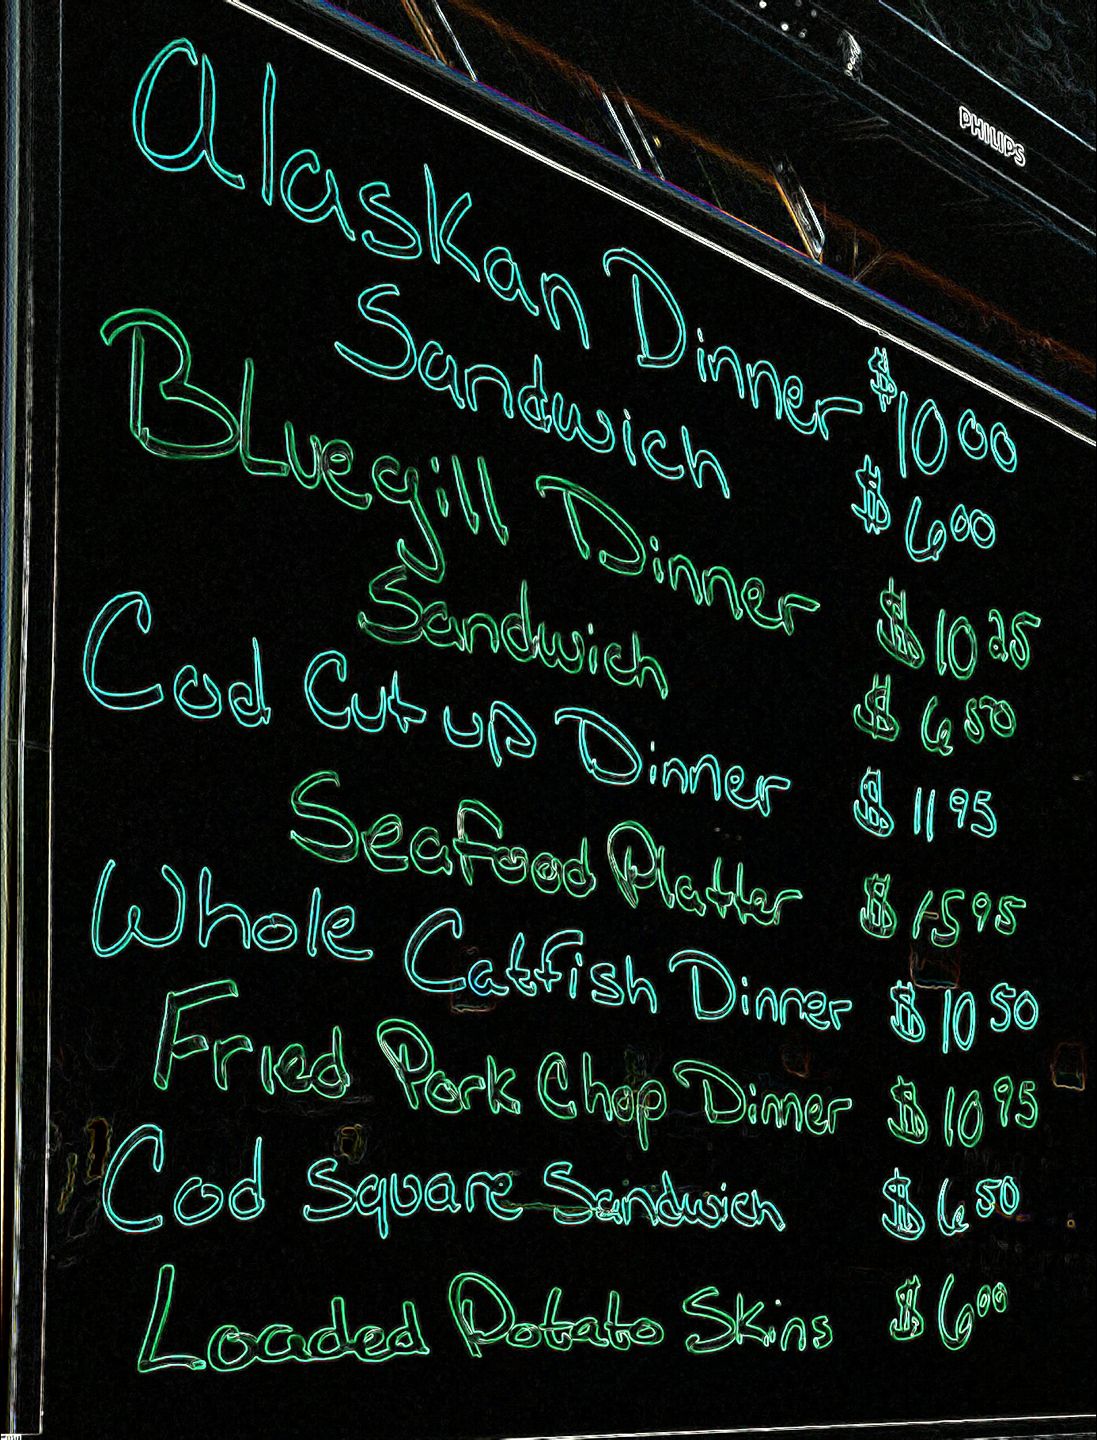 PHILIPS
Alaskan Dinner $10 00
Sandwich $6 00
BLuegill Dinner $10 25
Sandwich $6 50
Cod Cut up Dinner $11 95
Seafood Platter $15 95
Whole Catfish Dinner $10 50
Fried Pork Chop Dinner $10 95
Cod Square Sandwich $6 50
Loaded Potato Skins $6 00